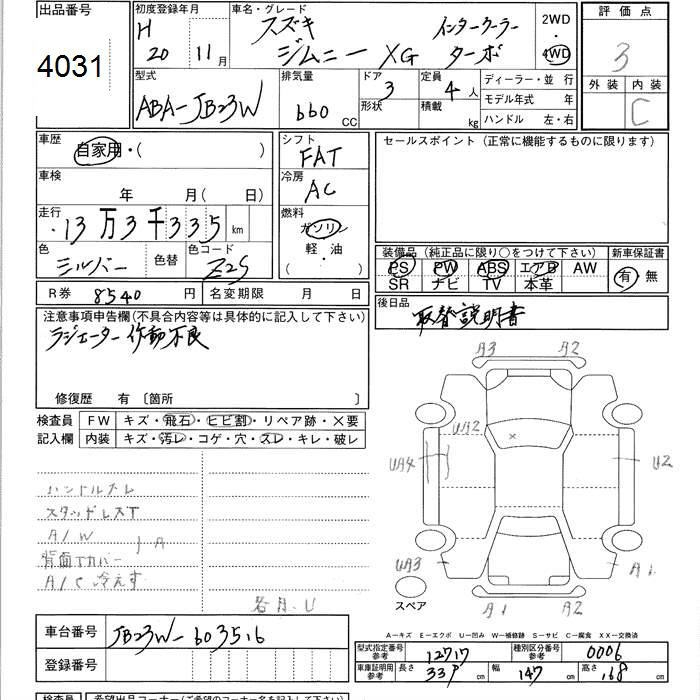 出品番号 初度登録年月 車名・グレード 2WD 評価点
4031 H 20 11月 スズキ ジムニー XG インタークーラー ターボ 4WD 3
型式 排気量 ドア 定員 ディーラー・並 行 外装 内装
ABA-JB23W 660 CC 3 4人 モデル年式 年 C
形状 積載 kg ハンドル 左・右
車歴 自家用・( ) シフト FAT セールスポイント (正常に機能するものに限ります)
車検 年 月( 日) 冷房 AC
走行 13万3千335 km 燃料 ガソリン
色 シルバー 色替 色コード Z2S 軽・油 ( )
装備品 (純正品に限り○をつけて下さい) 新車保証書
PS PW ABS エアB AW 有 無
SR ナビ TV 本革
R券 8540 円 名変期限 月 日
後日品 取替説明書
注意事項申告欄(不具合内容等は具体的に記入して下さい)
ラジエーター作動不良
修復歴 有 〔箇所 〕
検査員 FW キズ・飛石・ヒビ割・リペア跡・X要
記入欄 内装 キズ・汚レ・コゲ・穴・スレ・キレ・破レ
A3 A2
UA2
UA4 U2
UA3 A1
スペア
A1 A2
ハンドルスレ
スタッドレスT
A/W
背面Tカバー A
A/C 冷えず
各月.U
A-キズ E-エクボ U-凹み W-補修跡 S-サビ C-腐食 XX-交換済
車台番号 JB23W-603516
登録番号
型式指定番号 参考 12717 種別区分番号 参考 0006
車庫証明用 参考 長さ 339 cm 幅 147 cm 高さ 168 cm
検査員 希望出品コーナー(ご希望のコーナー名を記入下さい)